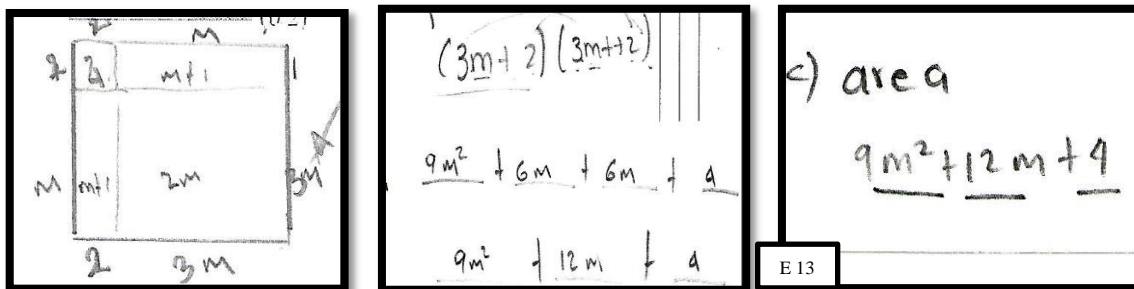 2 M
2 2 m+1 1
M m+1 2m 3M
2 3M
(3m+2)(3m+2)
9m² + 6m + 6m + 4
9m² + 12m + 4
c) area
9m²+12m+4
E 13